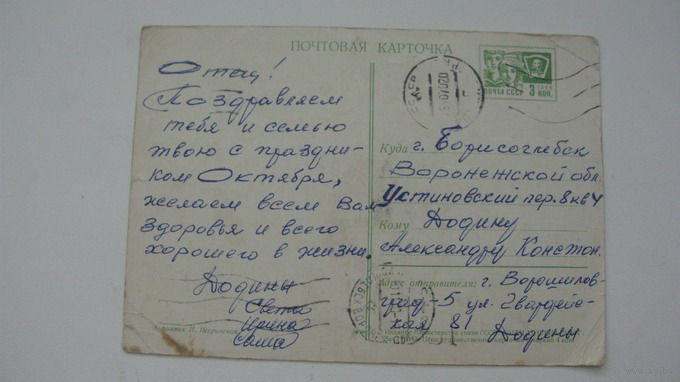 ПОЧТОВАЯ КАРТОЧКА
Отец!
Поздравляем
тебя и семью
твою с праздни-
ком Октября,
желаем всем Вам
здоровья и всего
хорошего в жизни.
Додины
Света
Ирина
Саша
ПОЧТА СССР
3 КОП.
Куда г. Борисоглебск
Воронежской обл.
Устиновский пер. 8 кв 4
Кому Додину
Александру Констан.
Адрес отправителя: г. Ворошилов-
град-5 ул. Гвардей-
ская 81 Додины